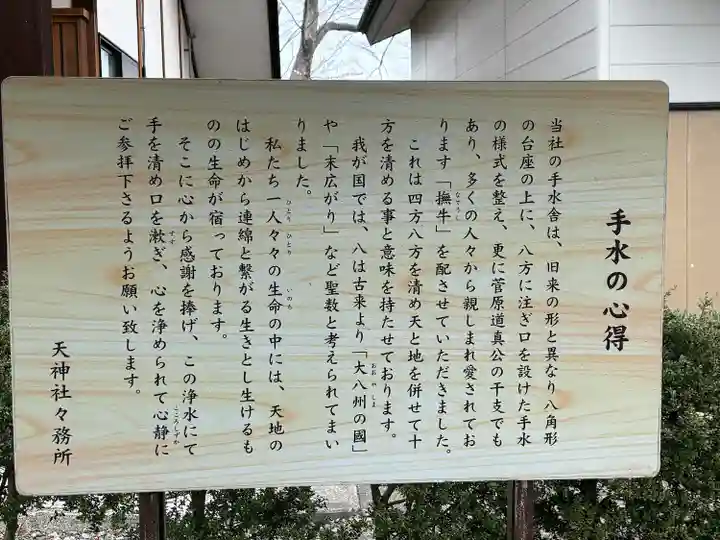 手水の心得
当社の手水舎は、旧来の形と異なり八角形
の台座の上に、八方に注ぎ口を設けた手水
の様式を整え、更に菅原道真公の干支でも
あり、多くの人々から親しまれ愛されてお
ります「撫牛」を配させていただきました。
なでうし
これは四方八方を清め天と地を併せて十
方を清める事と意味を持たせております。
我が国では、八は古来より「大八州の國」
おおやしま
や「末広がり」など聖数と考えられてまい
りました。
私たち一人々々の生命の中には、天地の
ひとり ひとり いのち
はじめから連綿と繋がる生きとし生けるも
のの生命が宿っております。
そこに心から感謝を捧げ、この浄水にて
手を清め口を漱ぎ、心を浄められて心静に
すす こころしずか
ご参拝下さるようお願い致します。
天神社々務所